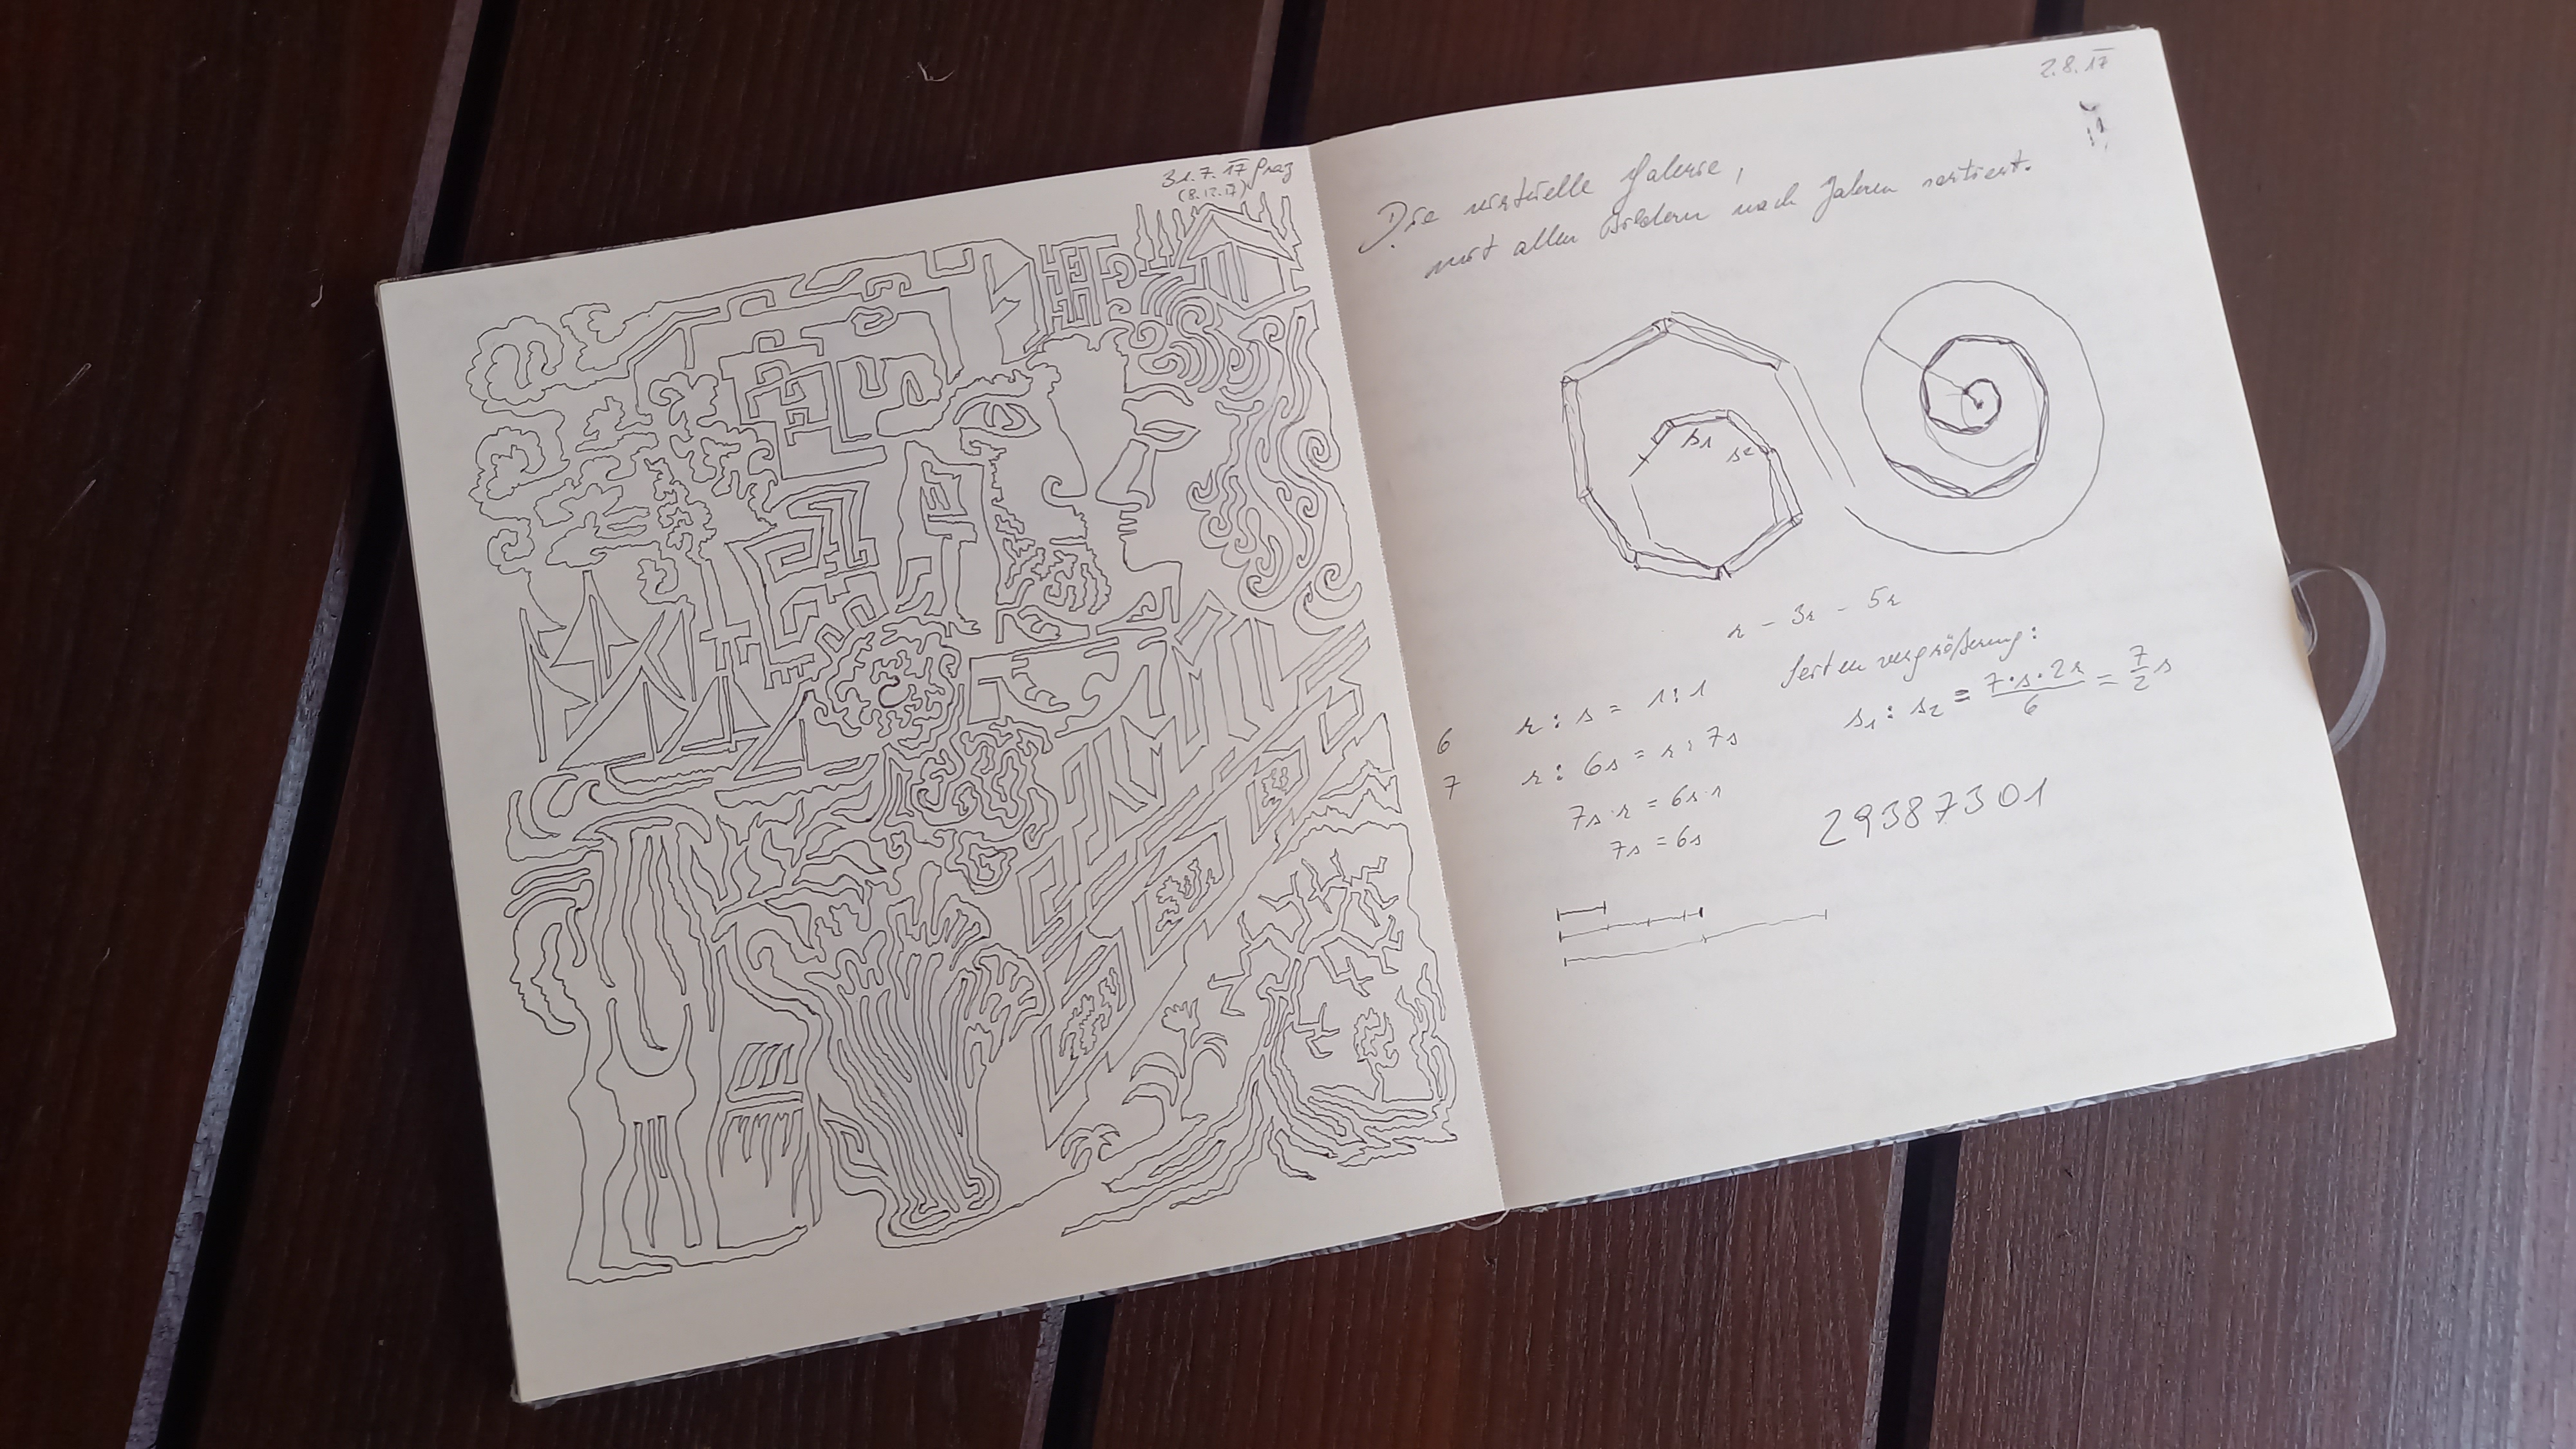 31.7.17 Graz
(8.12.17)
2.8.17
Die virtuelle Galerie,
mit allen Bildern nach Jahren sortiert.
s1 s2
r - 3r - 5r
Seitenvergrößerung:
6 r : s = 1:1
s1 : s2 = 7·s·2r / 6 = 7/2 s
7 r : 6s = r : 7s
7s·r = 6s·r
7s = 6s
29387301